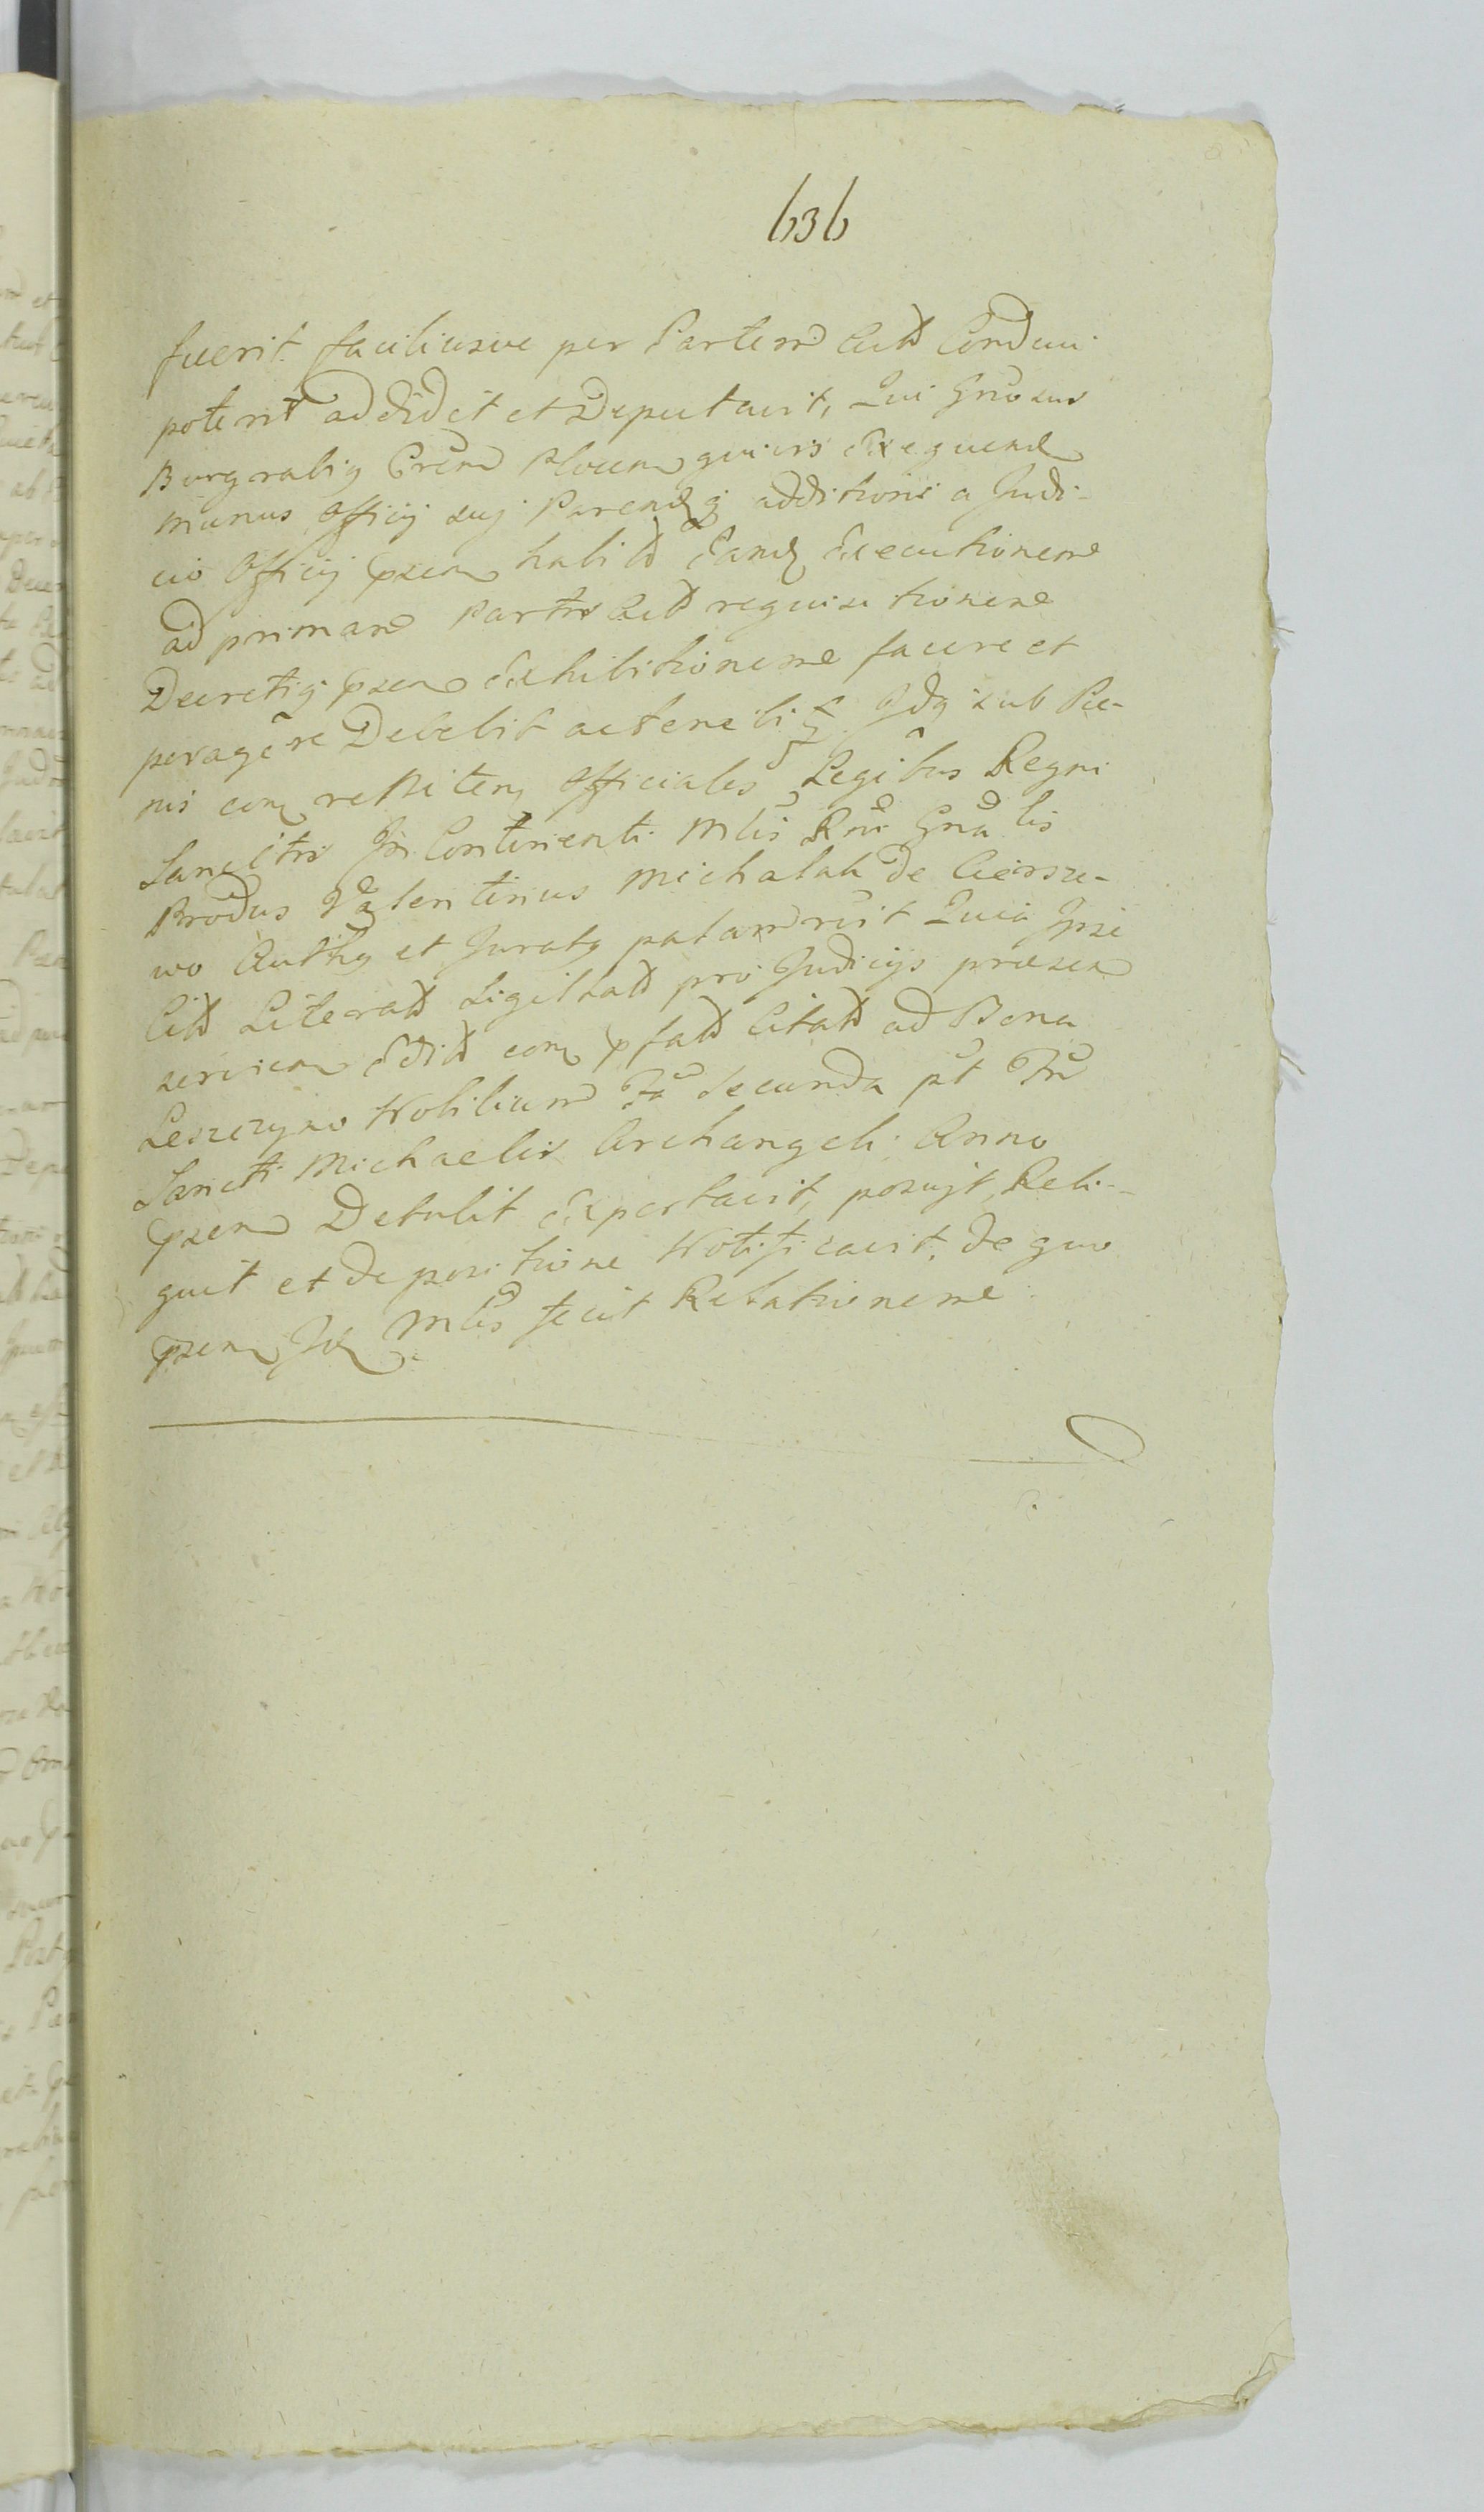 636
fuerit faciliusve per Partem Actt Conduci
poterit addidit et Deputavit, Qui Gnosus
Burgrabiq Crem Plocen quivis Exequend
munus Officij suj Parendq additioni a Judi-
cio Officij pzen habitt Eand Executionem
ad primam Partis Actt requisitionem
Decretiq pzen Exhibitionem facere et
peragere Debebit ac tenebit Idq sub Pœ-
nis con reniten Officiales Legibus Regni
Sancitis In Continenti Mlis Rni Gnalis
Produs Valentinus Michalak de Ciersze-
wo Authq et Juratq palam rcit Quia Ipse
Citt Literatt Sigillatt pro Judicijs præsen
servien Editt con pfatt Citatt ad Bona
Leszczyno Nobilium Fa Secunda pt Fm
Sancti Michaelis Archangeli Anno
pzen Detulit Exportavit, posujt, Reli-
quit et de positione Notificavit, de quo
pzen Id Mlis fecit Relationem